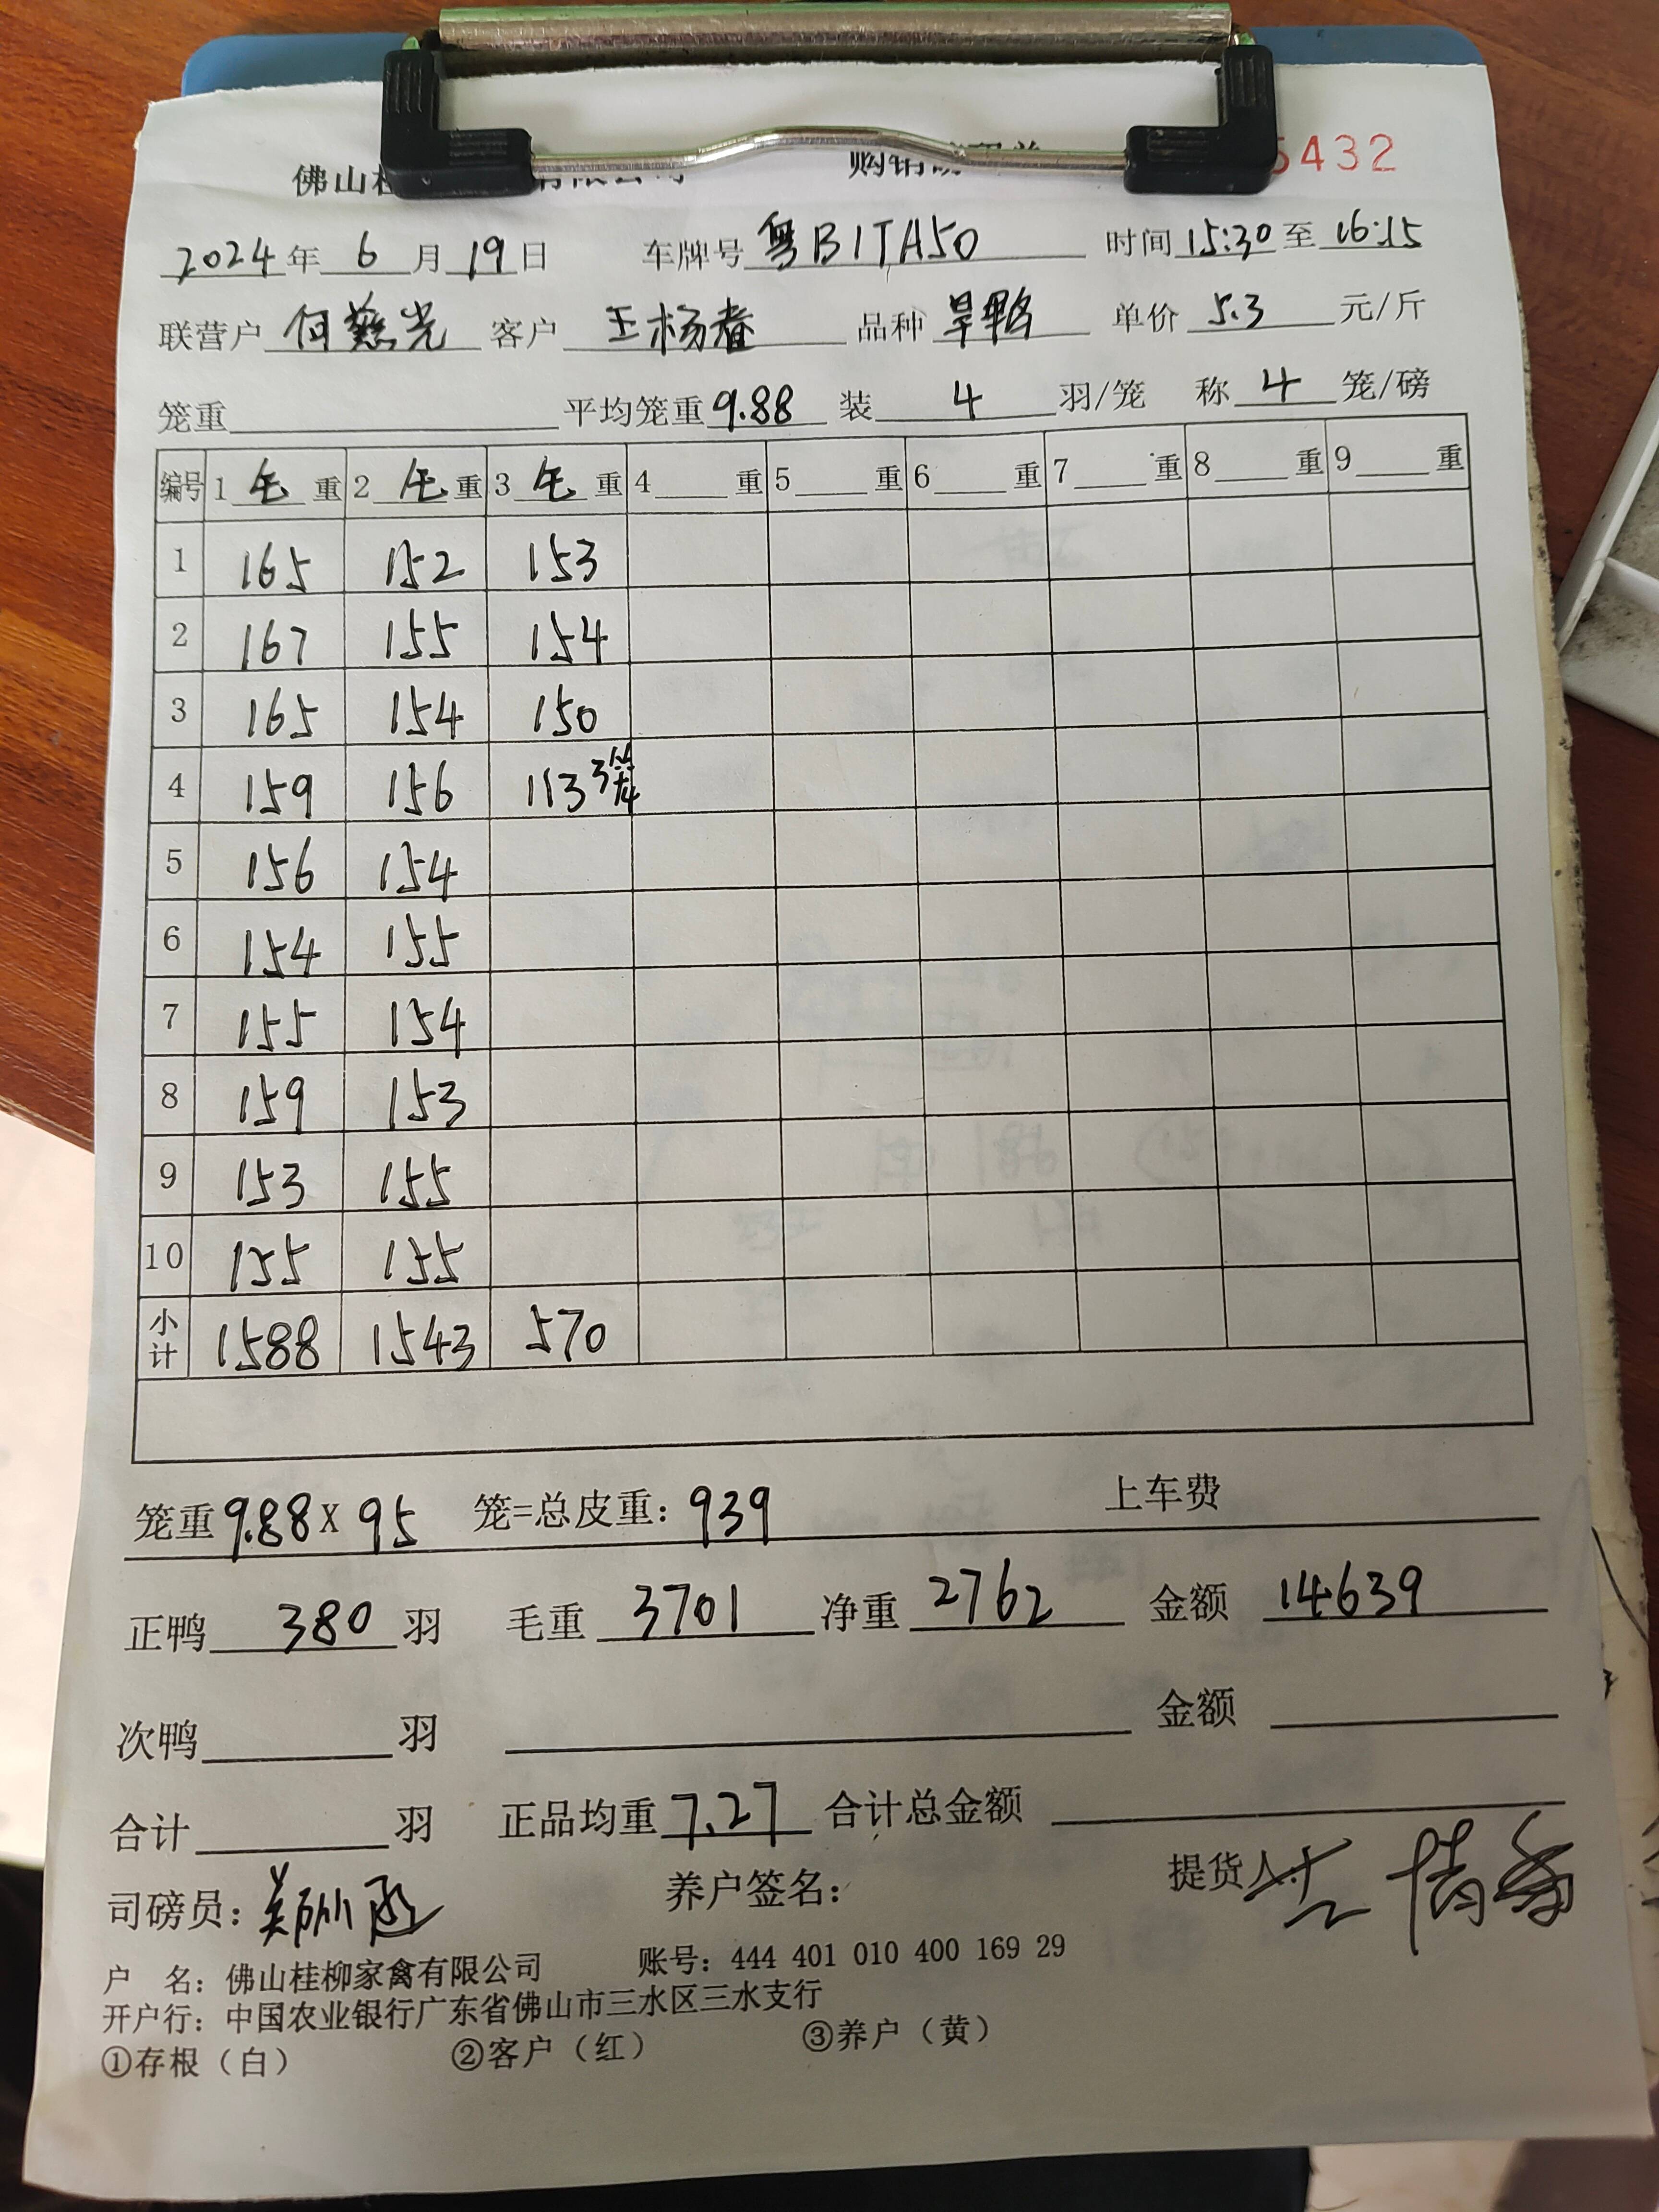 佛山桂 有限公司 购销磅码单 5432
2024年 6 月 19 日 车牌号 粤B1TA50 时间 15:30 至 16:15
联营户 何 光 客户 王杨春 品种 旱鸭 单价 5.3 元/斤
笼重 平均笼重 9.88 装 4 羽/笼 称 4 笼/磅
编号 1 毛 重 2 毛 重 3 毛 重 4 重 5 重 6 重 7 重 8 重 9 重
1 165 152 153
2 167 155 154
3 165 154 150
4 159 156 113 3笼
5 156 154
6 154 155
7 155 154
8 159 153
9 153 155
10 155 155
小计 1588 1543 570
笼重 9.88 X 95 笼=总皮重: 939 上车费
正鸭 380 羽 毛重 3701 净重 2762 金额 14639
次鸭 羽 金额
合计 羽 正品均重 7.27 合计总金额
司磅员: 养户签名: 提货人
户 名: 佛山桂柳家禽有限公司 账号: 444 401 010 400 169 29
开户行: 中国农业银行广东省佛山市三水区三水支行
①存根(白) ②客户(红) ③养户(黄)